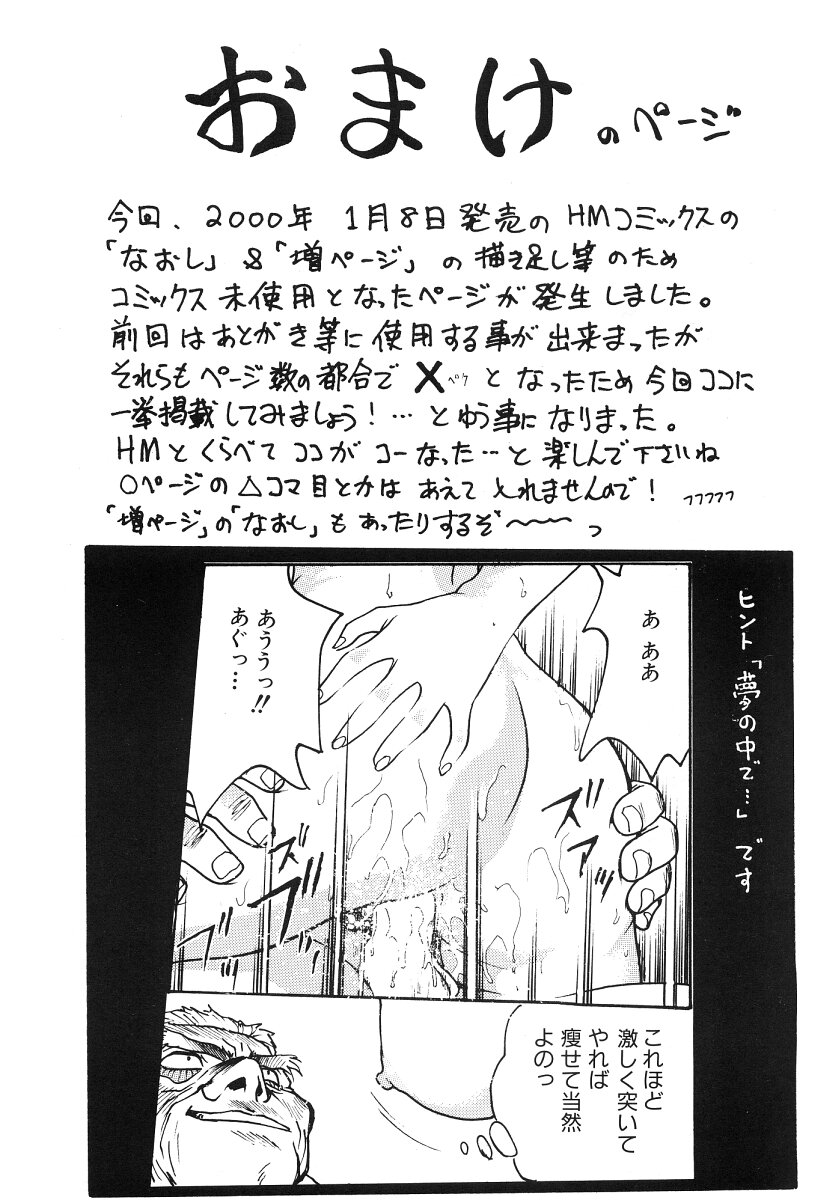 おまけのページ
今回、2000年 1月8日発売のHMコミックスの
「なおし」&「増ページ」の描き足し等のため
コミックス未使用となったページが発生しました。
前回はあとがき等に使用する事が出来まったが
それらもページ数の都合で✕ペケとなったため今回ココに
一挙掲載してみましょう!…とゆう事になりました。
HMとくらべてココがコーなった…と楽しんで下さいね
○ページの△コマ目とかはあえてとれませんので! フフフフフ
「増ページ」の「なおし」もあったりするぞ〜〜〜っ
ヒント「夢の中で…」です
あ ああ
あううっ!!
あぐっ…
ズッ
ズァッ
これほど
激しく突いて
やれば
痩せて当然
よのっ